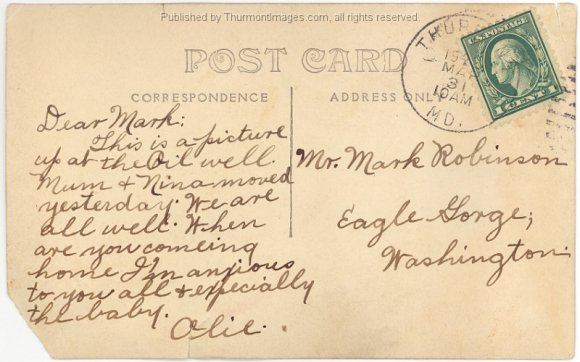 Published by ThurmontImages.com, all rights reserved.
POST CARD
CORRESPONDENCE
ADDRESS ONLY
THUR
MAR
31
10AM
MD.
U.S. POSTAGE
1 CENT 1
Dear Mark:
This is a picture
up at the Oil well.
Mum & Nina moved
yesterday. We are
all well. When
are you comeing
home I'm anxious
to you all & especially
the baby.
Olie.
Mr. Mark Robinson
Eagle Gorge,
Washington.